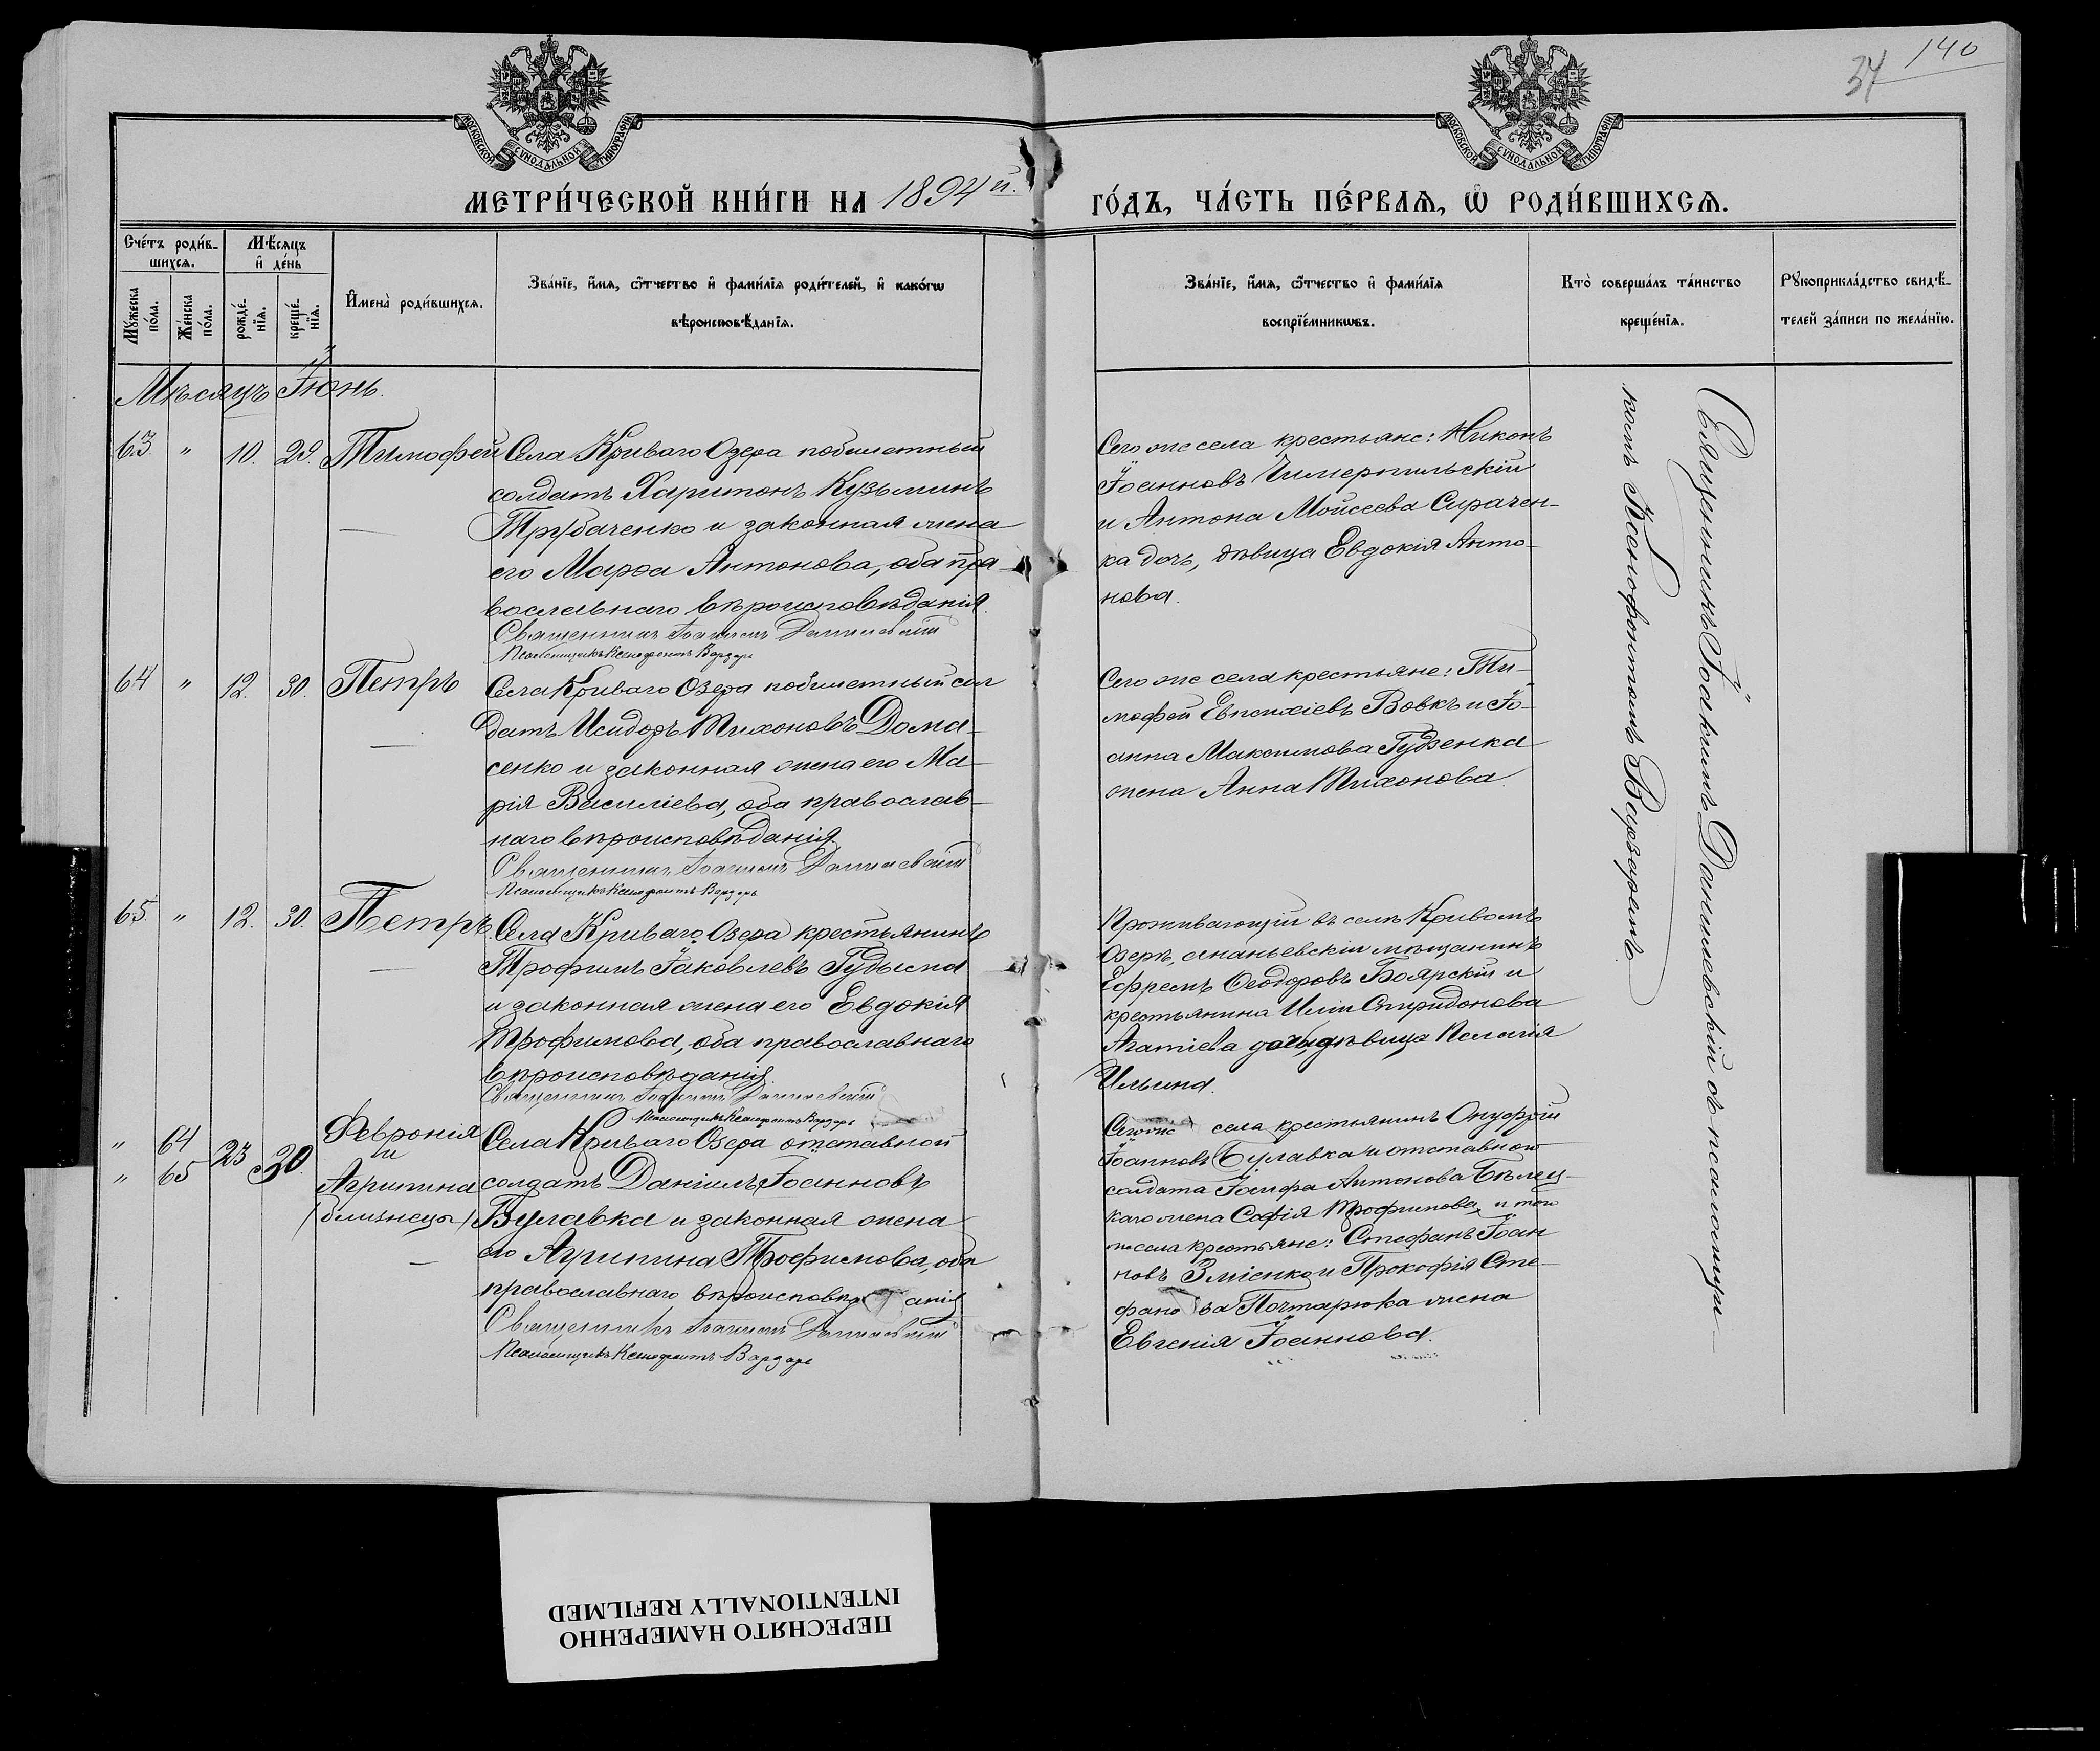 140
34
МОСКОВСКОЙ СУНОДАЛЬНОЙ ТИПОГРАФІИ
МОСКОВСКОЙ СУНОДАЛЬНОЙ ТИПОГРАФІИ
МЕТРИ́ЧЕСКОЙ КНИ́ГИ НА 1894й.
ГО́ДЪ, ЧА́СТЬ ПЕ́РВАѦ, Ѡ҆ РОДИ́ВШИХСѦ.
Сче́тъ роди́в-
шихсѧ.
Мꙋ́жеска по́ла.
Же́нска по́ла.
Мѣ́сѧцъ
и҆ де́нь
рожде́-
нїѧ.
креще́-
нїѧ.
И҆мена̀ роди́вшихсѧ.
Зва́нїе, и҆́мѧ, ѻ҆́тчество и҆ фами́лїѧ роди́телей, и҆ како́гѡ
вѣроисповѣ́данїѧ.
Зва́нїе, и҆́мѧ, ѻ҆́тчество и҆ фами́лїѧ
воспрїе́мникѡвъ.
Кто̀ соверша́лъ та́инство
креще́нїѧ.
Рꙋкоприкла́дство свидѣ́-
телей за́писи по жела́нїю.
Мѣсяцъ Іюнь.
63 " 10. 29. Тимофей
Села Криваго Озера побилетный
солдатъ Харитонъ Кузьминъ
Трубаченко и законная жена
его Марѳа Антонова, оба пра-
вославнаго вѣроисповѣданія.
Священникъ Іоакимъ Данилевскій
Псаломщикъ Ксенофонтъ Варзарь
Сего же села крестьяне: Никонъ
Іоанновъ Чимерпильскій
и Антона Мойсеева Сирачен-
ка дочь, дѣвица Евдокія Анто-
нова.
64 " 12. 30. Петръ
Села Криваго Озера побилетный сол
датъ Исидоръ Тихоновъ Дома-
сенко и законная жена его Ма-
рія Василіева, оба православ-
наго вѣроисповѣданія
Священникъ Іоакимъ Данилевскій
Псаломщикъ Ксенофонтъ Варзарь
Сего же села крестьяне: Ти-
мофей Евпсихіевъ Вовкъ и Іо-
анна Максимова Гудзенка
жена Анна Тихонова.
65 " 12. 30. Петръ.
Села Криваго Озера крестьянинъ
Трофимъ Іаковлевъ Гудыма
и законная жена его Евдокія
Трофимова, оба православнаго
вѣроисповѣданія.
Священникъ Іоакимъ Данилевскій
Псаломщикъ Ксенофонтъ Варзарь
Проживающій въ селѣ Кривомъ
Озерѣ, ананьевскій мѣщанинъ
Ефремъ Ѳеодоровъ Боярскій и
крестьянина Иліи Спиридонова
дочь, дѣвица Пелагія
Ильина.
" 64
" 65
23 30.
Февронія
и
Агрипина
/близнецы/
Села Криваго Озера отставной
солдатъ Даніилъ Іоанновъ
Булавка и законная жена
его Агрипина Трофимова, оба
православнаго вѣроисповѣданія
Священникъ Іоакимъ Данилевскій
Псаломщикъ Ксенофонтъ Варзарь
Сего же села крестьянинъ Онуфрій
Іоанновъ Булавка и отставного
солдата Іосифа Антонова Бѣлец-
каго жена Софія Трофимова, и того
же села крестьяне: Стефанъ Іоан
новъ Зміенко и Прокофія Сте-
фанова Почтарюка жена
Евгенія Іоаннова.
Священникъ Іоакимъ Данилевскій съ псаломщи-
комъ Ксенофонтомъ Варзаремъ.
ПЕРЕСНЯТО НАМЕРЕННО
INTENTIONALLY REFILMED